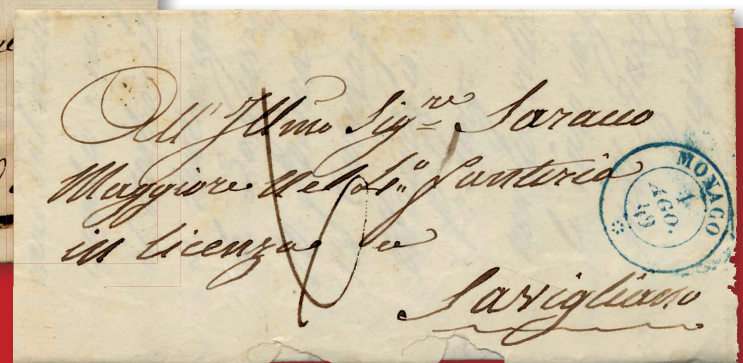 All' Illmo Sig.re Saracco
Maggiore del 2.o Fanteria
in licenza a
Savigliano
MONACO
1
AGO.
49